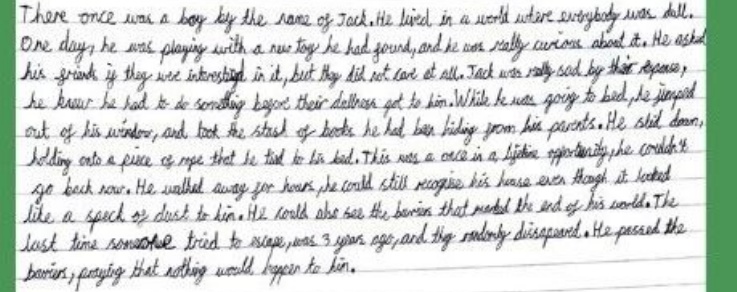 There once was a boy by the name of Jack. He lived in a world where everybody was dull.
One day, he was playing with a new toy he had found, and he was really curious about it. He asked
his friends if they were interested in it, but they did not care at all. Jack was really sad by their response,
he knew he had to do something before their dullness got to him. While he was going to bed, he jumped
out of his window, and took the stash of books he had been hiding from his parents. He slid down,
holding onto a piece of rope that he tied to his bed. This was a once in a lifetime opportunity, he couldn't
go back now. He walked away for hours, he could still recognise his house even though it looked
like a speck of dust to him. He could also see the barriers that marked the end of his world. The
last time someone tried to escape, was 3 years ago, and they randomly dissapeared. He passed the
barriers, praying that nothing would happen to him.